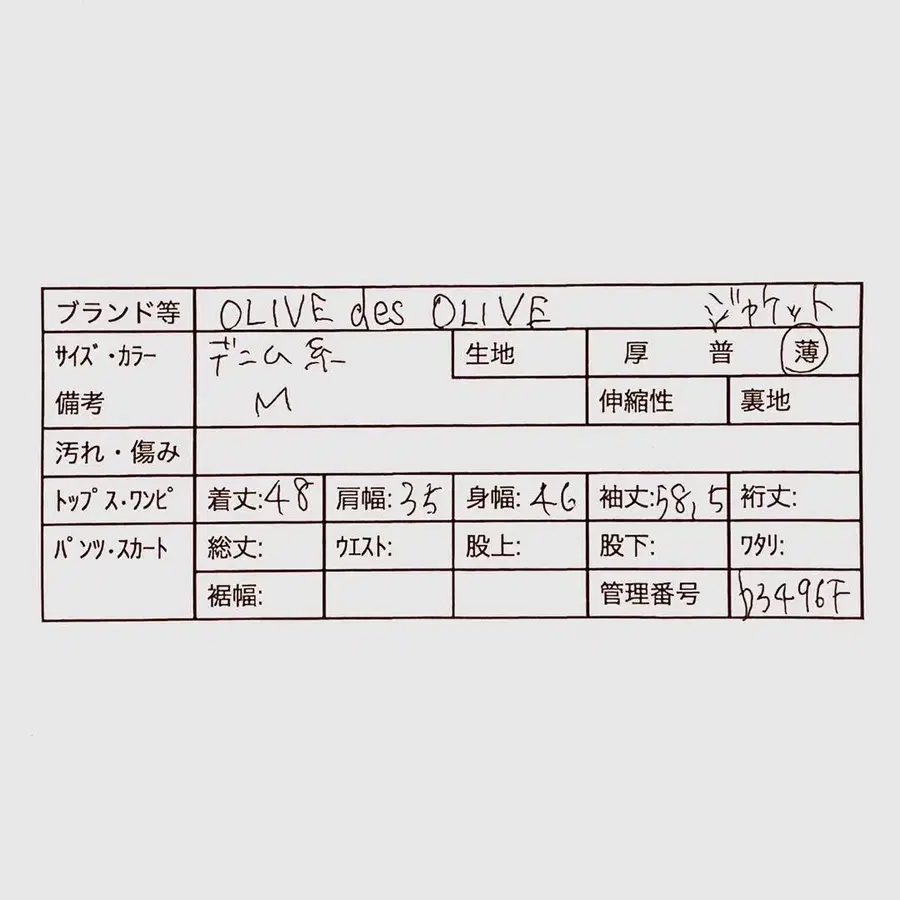 ブランド等 OLIVE des OLIVE ジャケット
サイズ・カラー デニム系 生地 厚 普 薄
備考 M 伸縮性 裏地
汚れ・傷み
トップス・ワンピ 着丈:48 肩幅:35 身幅:46 袖丈:58,5 裄丈:
パンツ・スカート 総丈: ウエスト: 股上: 股下: ワタリ:
裾幅: 管理番号 b3496F